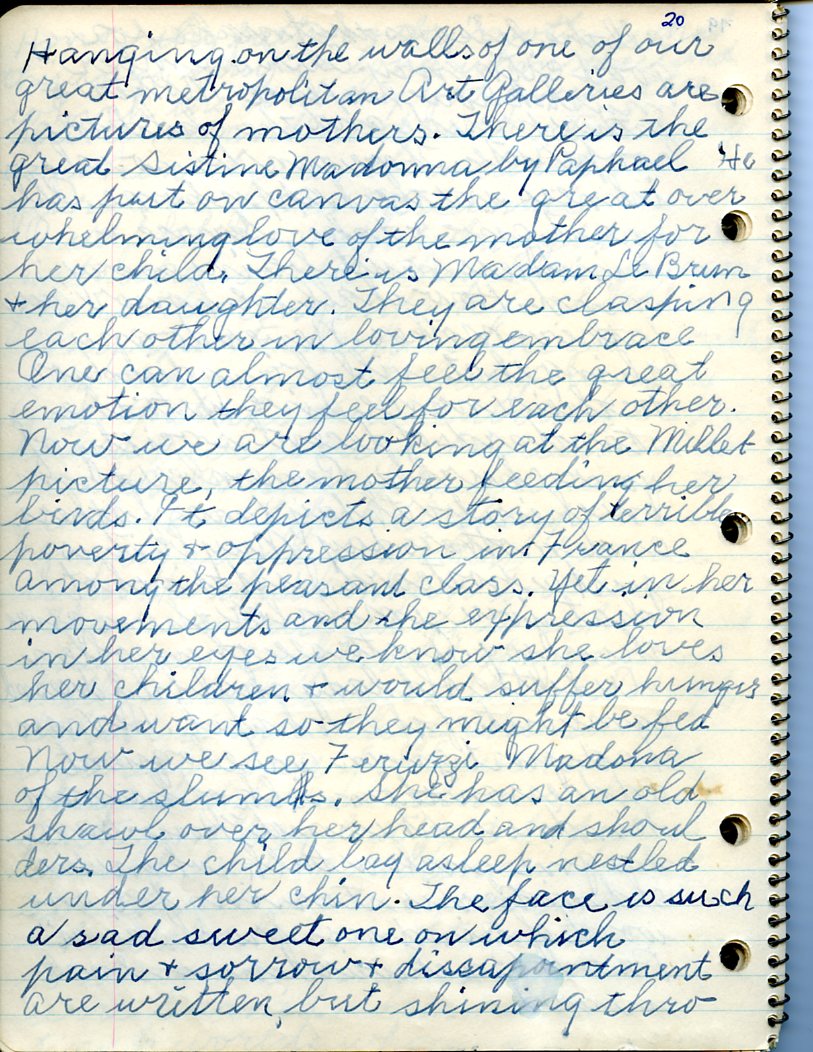 20
Hanging on the walls of one of our
great metropolitan Art Galleries are
pictures of mothers. There is the
great Sistine Madonna by Raphael He
has put on canvas the great over
whelming love of the mother for
her child. There is Madam Le Brun
+ her daughter. They are clasping
each other in loving embrace
One can almost feel the great
emotion they feel for each other.
Now we are looking at the Millet
picture, the mother feeding her
birds. It depicts a story of terrible
poverty + oppression in France
among the peasant class. Yet in her
movements and the expression
in her eyes we know she loves
her children + would suffer hunger
and want so they might be fed
Now we see Feruzzi Madona
of the slums. She has an old
shawl over her head and shoul
ders. The child lay asleep nestled
under her chin. The face is such
a sad sweet one on which
pain + sorrow + dissapointment
are written, but shining thro